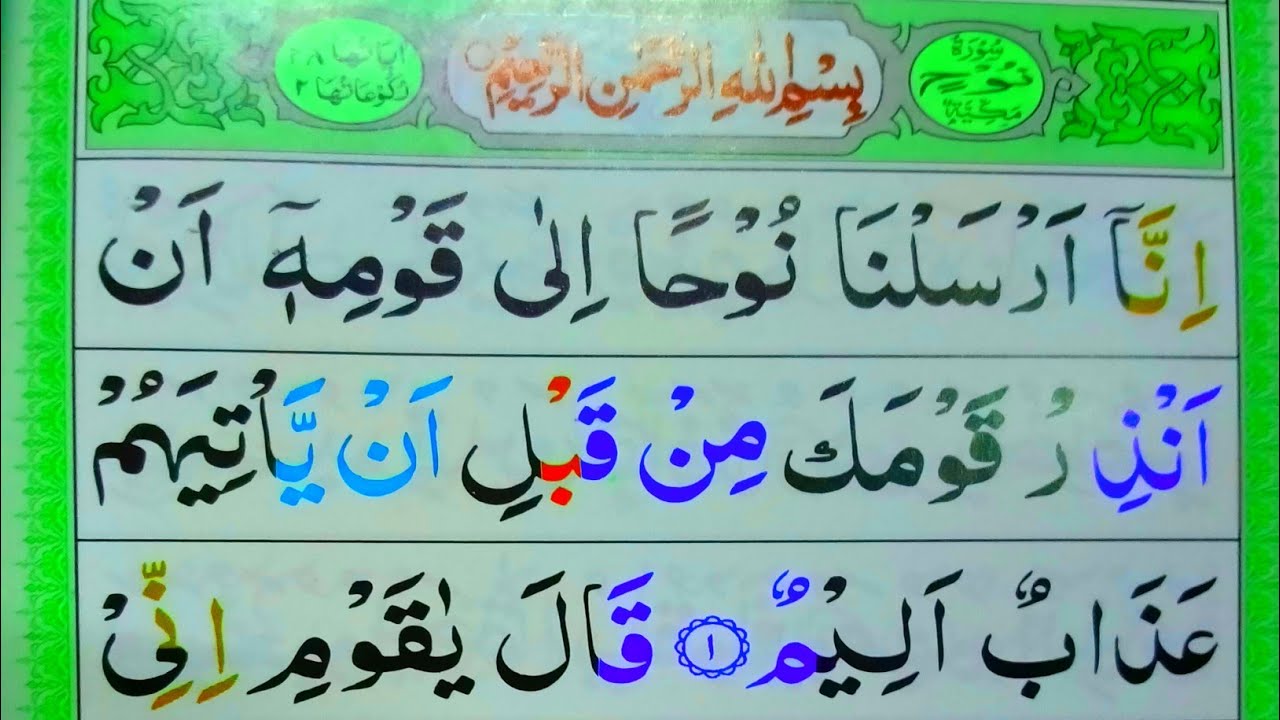 سُوْرَةُ نُوْحٍ مَكِّيَّةٌ
بِسْمِ اللهِ الرَّحْمٰنِ الرَّحِيْمِ
اٰيَاتُهَا ٢٨
رُكُوْعَاتُهَا ٢
اِنَّاۤ اَرْسَلْنَا نُوْحًا اِلٰى قَوْمِهٖۤ اَنْ
اَنْذِرْ قَوْمَكَ مِنْ قَبْلِ اَنْ يَّاْتِيَهُمْ
عَذَابٌ اَلِيْمٌ ١ قَالَ يٰقَوْمِ اِنِّىْ